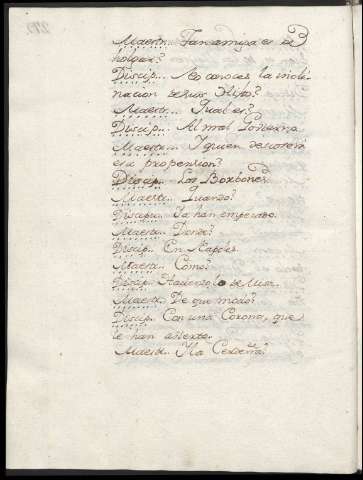 Maestr... Tan amiga es de
holgar?
Discip... No conoces la incli-
nacion de sus Hijos?
Maestr... Qual es?
Discip... Al mal Govierno
Maestr... Y quien
esta propension?
Discip... Los Borbones
Maestr... Quando?
Discipu... Ya han empezado.
Maestr... Donde?
Discip... En Napoles.
Maestr... Como?
Discip... Haciendola de Misa.
Maestr... De que modo?
Discip... Con una Corona, que
le han abierto.
Maestr... Y la Cerdeña?